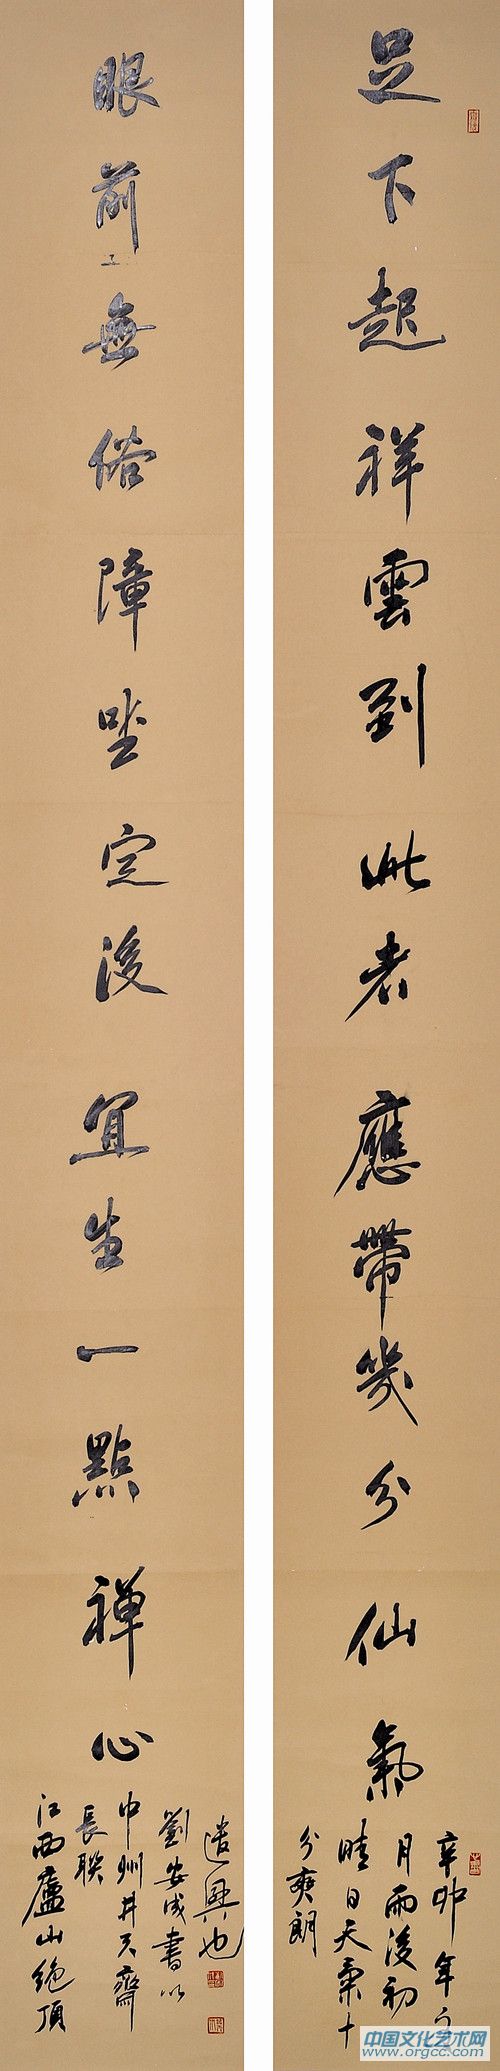 足下起祥雲到此者應帶幾分仙氣
辛卯年
月雨後初
晴日天氣十
分爽朗
眼前無俗障坐定後宜生一點禪心
江西廬山絶頂
長聯
中州井天齋
劉安成書以
遣興也
中国文化艺术网
www.orgcc.com